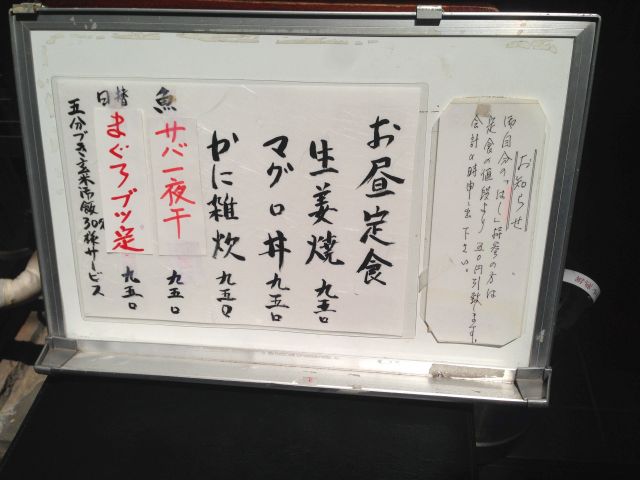 お知らせ
御自分の「はし」持参の方は
定食の値段より五〇円引致します。
会計の時申し出下さい。
お昼定食
生姜焼 九五〇
マグロ丼 九五〇
かに雑炊 九五〇
魚 サバ一夜干 九五〇
日替 まぐろブツ定 九五〇
五分づき玄米御飯 30食様サービス